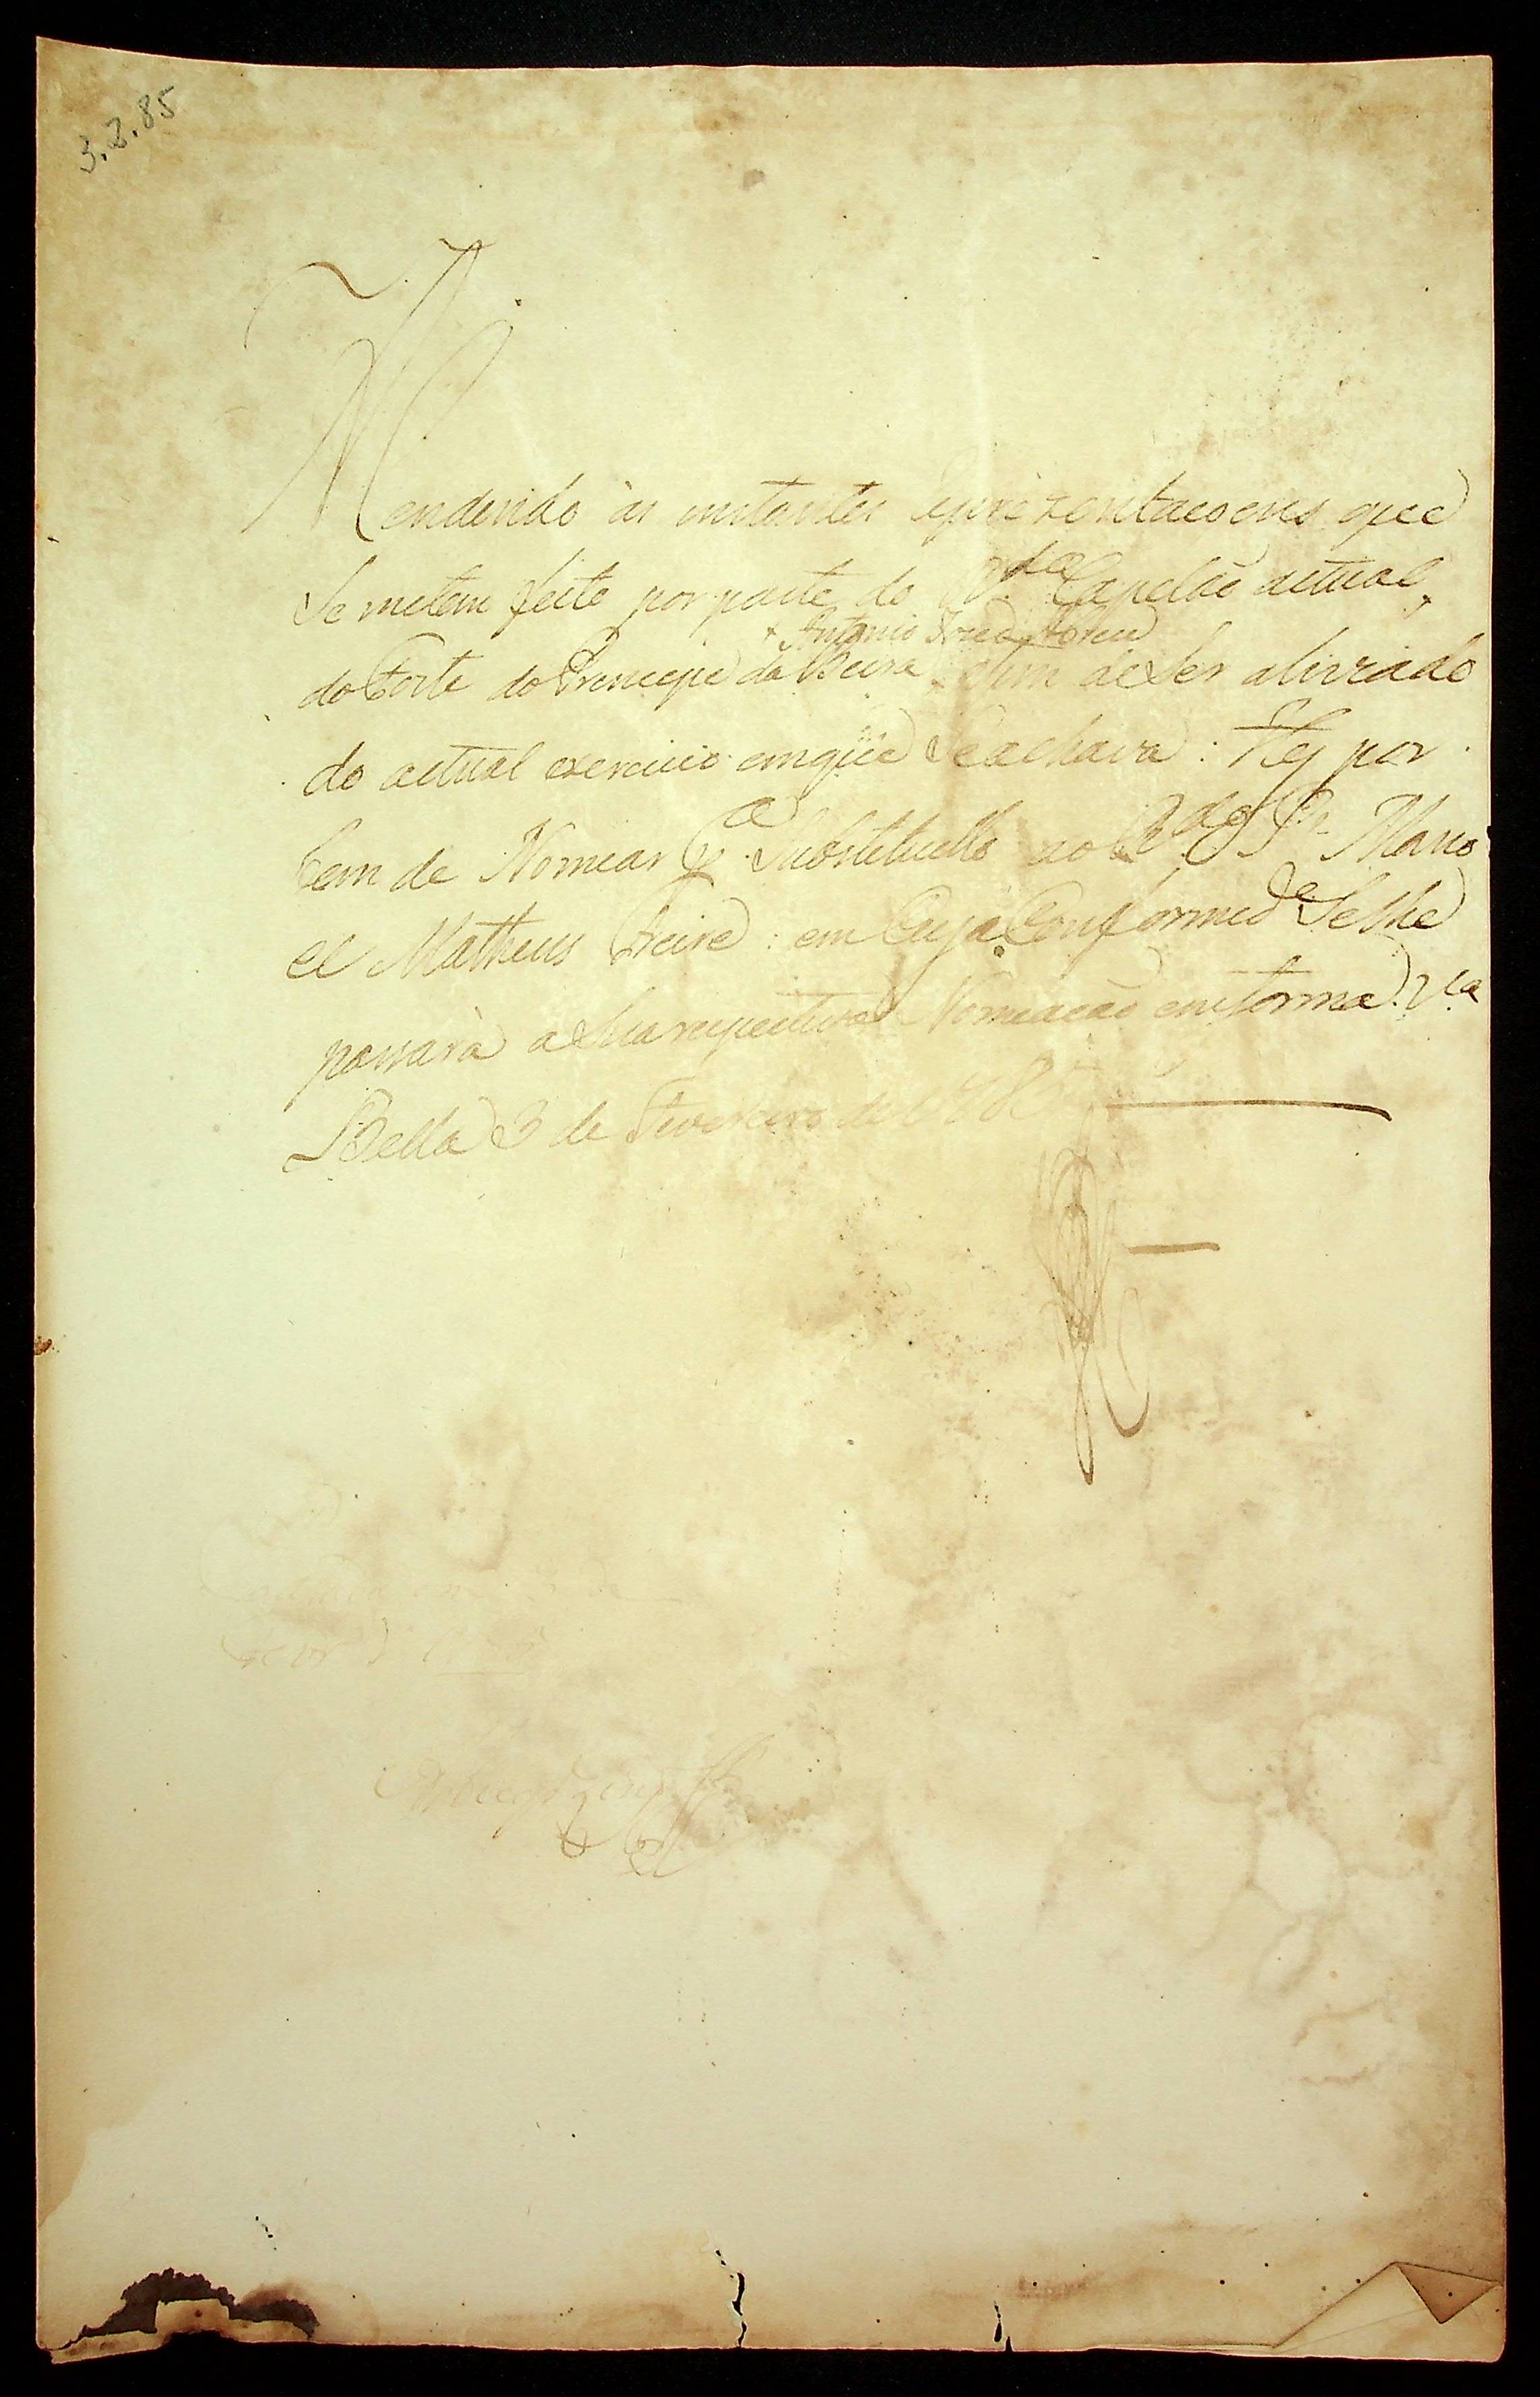 3.2.85
endendo às instantes Reprezentaçoens que
Se metem feito por parte do R.do Capelão actual
+ Antonio Joze Abreu
do Forte do Principe da Beira afim de Ser alivado
do actual exercicio emque Seachava: Hey por
bem de Nomear p.a Substetuillo ao R.do P.e Mano
el Matheus Freire: em Cuja Conformid.e Selhe
passarà aSua respectiva Nomeação em forma. V.a
Bella 3 de Fevereiro de 1785